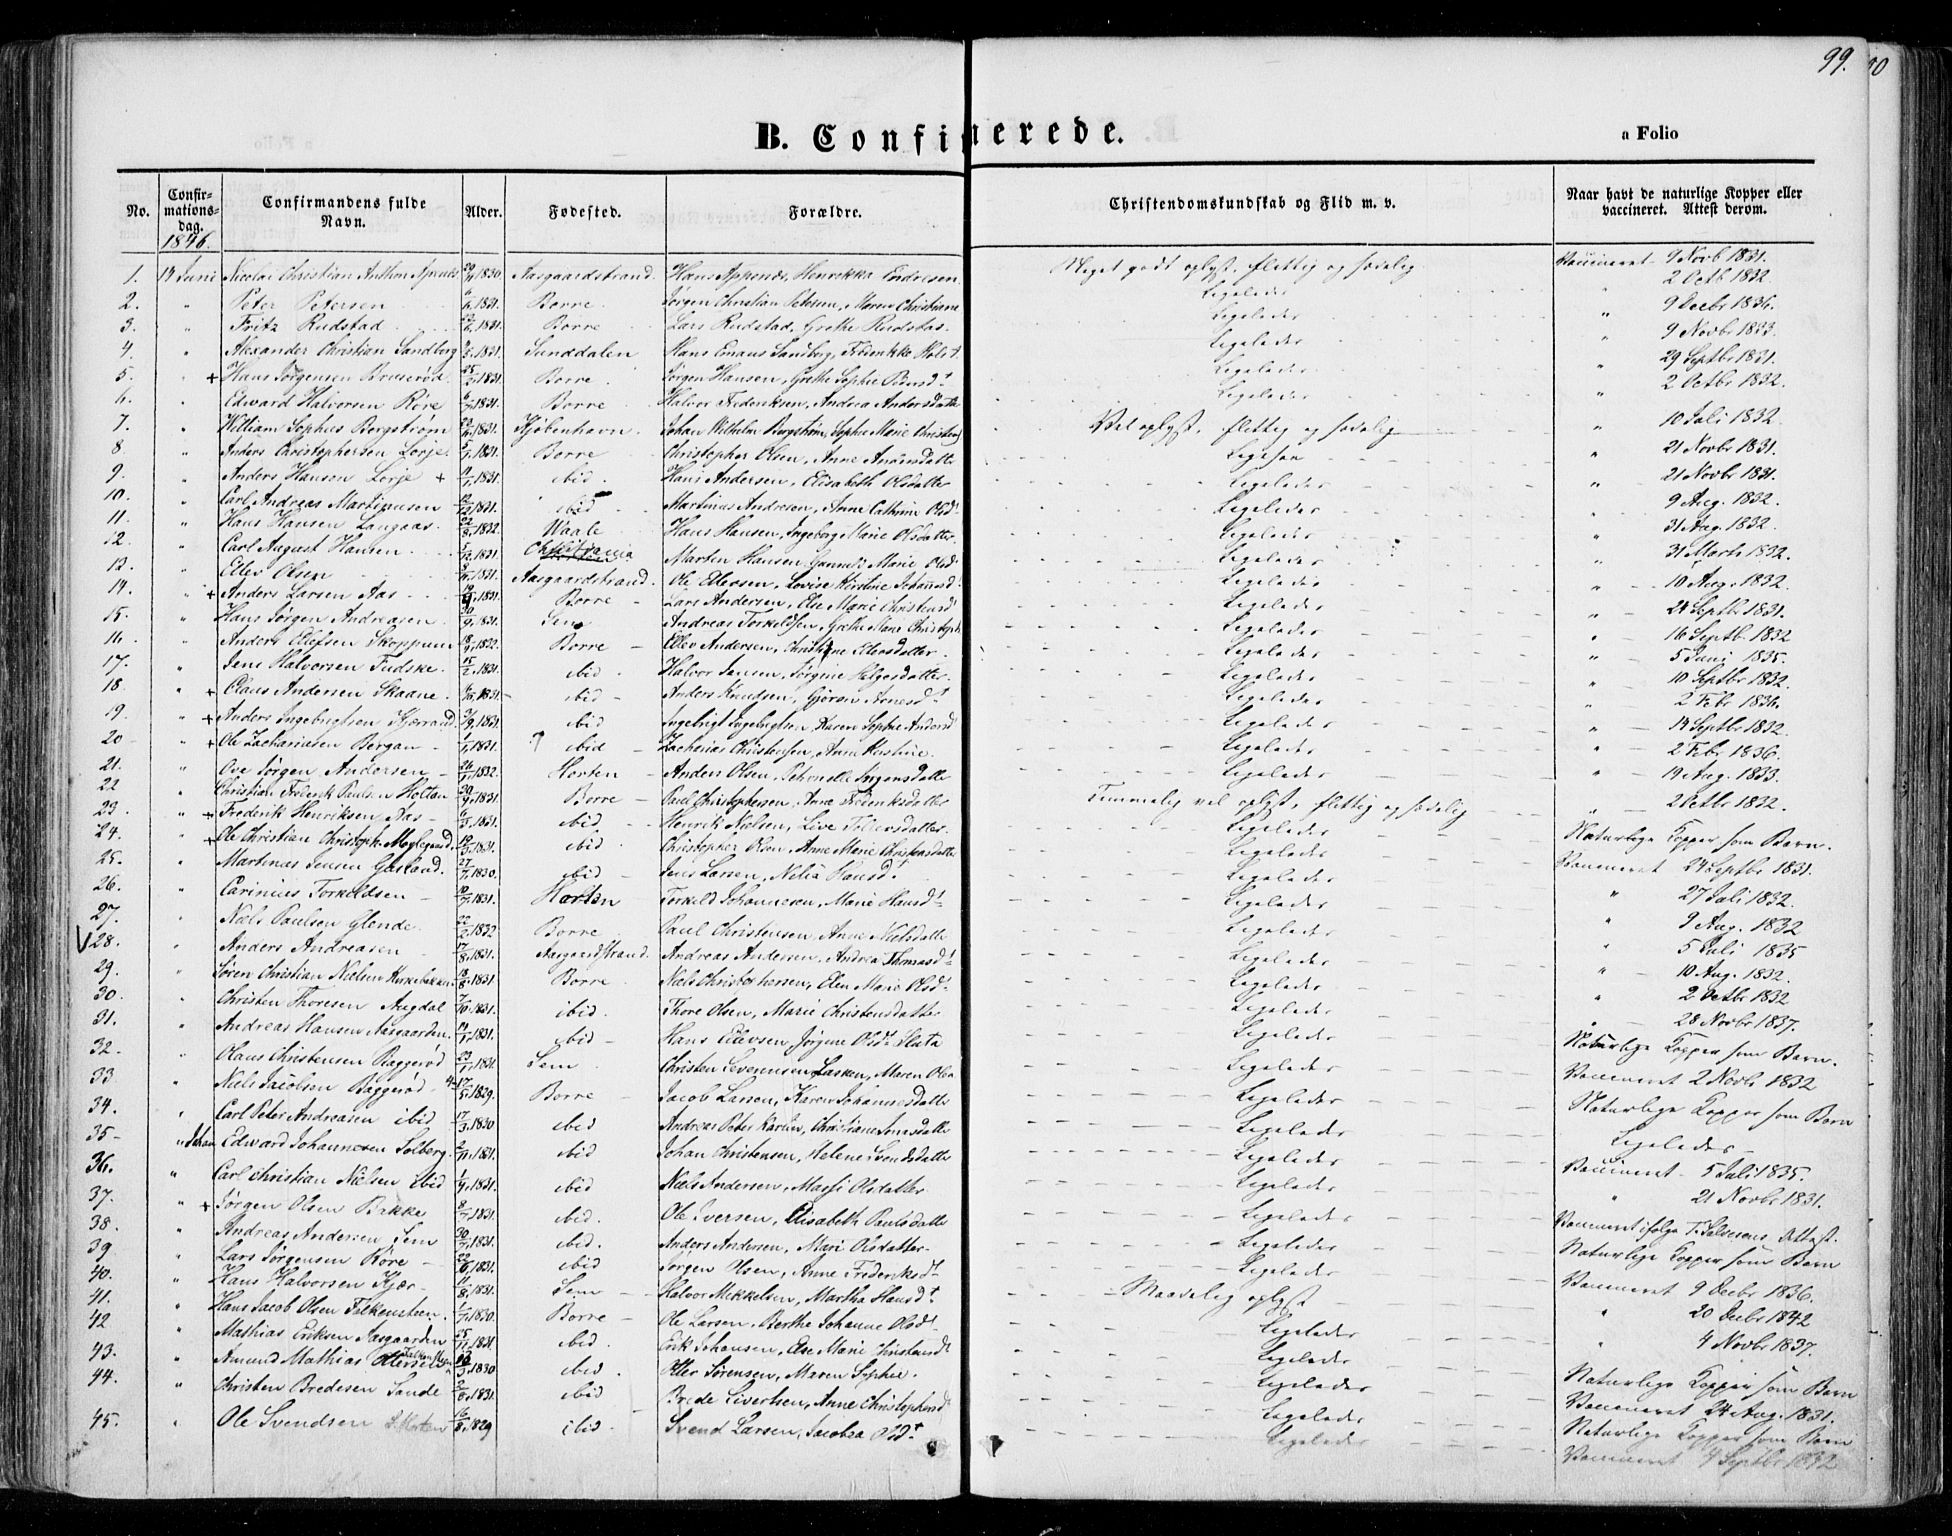 99.
B. Confirmerede.
a Folio
No. Confirmationsdag. Confirmandens fulde Navn. Alder. Fødested. Forældre. Christendomskundskab og Flid m. v. Naar havt de naturlige Kopper eller vaccineret. Attest derom.
1846.
1. 14 Juni Nicolai Christian Anthon 1830. Aasgaardstrand. Meget godt oplyst, flittig og sædelig. Vaccineret 9 Novb 1831.
2. " Peter Petersen 1831. Borre. Jørgen Christian Petersen, Maren Christiane Ligeledes " 2 Octb 1832.
3. " Fritz Rudstad 1831. Borre Lars Rudstad, Grethe Rudstad. Ligeledes " 9 Decbr 1836.
4. " Alexander Christian Sandberg 1831. Sanddalen Hans Emaus Sandberg, Fredrikke Holst. Ligeledes " 9 Novbr 1833.
5. " + Hans Jørgensen Bruserød. 1831. Borre. Jørgen Hansen, Grethe Sophie Ligeledes " 29 Septbr 1831.
6. " Edward Halvorsen Røre 1831. Borre Halvor Frederiksen, Andrea Andersdatter Ligeledes " 2 Octbr 1832.
7. " William Sophus Bergstrøm 1831. Kjøbenhavn. Johan Wilhelm Bergstrøm, Sophie Marie Vel oplyst, flittig og sædelig " 10 Juli 1832.
8 " Anders Christophersen Lorje 1831. Borre Christopher Olsen, Anne Andersdatter Ligesaa " 21 Novbr 1831.
9. " Anders Hansen Lorje + 1831. ibid. Hans Andersen, Elisabeth Olsdatter Ligeledes " 21 Novbr 1831.
10. " Carl Andreas Martinusen 1831. ibid Martinus Andresen, Anne Cathrine Olsd. Ligeledes " 9 Aug. 1832.
11. " Hans Hansen Langaas. 1832. Vaale Hans Hansen, Ingeborg Marie Olsdatter. Ligeledes " 31 Aug. 1832.
12. " Carl August Hansen 1831. Christiania Morten Hansen, Marie Olsd. Ligeledes " 31 Marts 1832.
13. " Ellev Olsen 1831. Aasgaardstrand. Ole Ellevsen, Lovise Kirstine Ligeledes " 10 Aug. 1832
14. " + Anders Larsen Aas 1831. Borre Lars Andersen, Else Marie Christensd. Ligeledes " 24 Septbr 1831.
15. " Hans Jørgen Andreasen 1831. Sem Andreas Torkeldsen, Grethe Marie Ligeledes " 16 Septb. 1832
16. " Anders Ellefsen Skoppum 1832. Borre Ellev Andersen, Ligeledes " 5 Juni 1835.
17. " Jens Halvorsen Fudske. 1831. ibid Halvor Jensen, Jørgine Helgesdatter. Ligeledes " 10 Septbr 1832.
18. " + Claus Andersen Skaane 1831 ibid Anders Knudsen, Gjøran Arnesd. Ligeledes " 2 Febr 1836.
19. " + Anders Ingebrigtsen Kjærand. 1831 ibid Ingebrigt Ingebrigtsen, Karen Sophie Andersd. Ligeledes " 14 Septbr 1832.
20 " + Ole Zachariasen Bergan 1831. ibid Zacharias Christensen, Anne Kirstine. Ligeledes " 2 Febr 1836.
21. " Ove Jørgen Andersen 1832. Horten Anders Olsen, Petronelle Jørgensdatter Ligeledes " 14 Aug. 1833.
22 " Christian Frederik Paulsen Holtan 1831. Borre Paul Christophersen, Anne Frederiksdatter Temmelig vel oplyst, flittig og sædelig " 2 Octbr 1832.
23. " + Frederik Henriksen Aas 1831. ibid. Henrik Nielsen, Live Ligeledes Naturlige Kopper som Barn.
24. " + Ole Christian Christoph. 1831. ibid. Christopher Olsen, Anne Marie Christensdatter Ligeledes Vaccineret 24 Septbr 1831.
25. " Martinus Jensen 1830. ibid Jens Larsen, Ligeledes " 27 Juli 1832.
26. " Carinius Torkeldsen 1831. Horten Torkeld Johannesen, Marie Hansd. Ligeledes " 9 Aug. 1832
27. " Niels Paulsen Glende. 1832 Borre Paul Christensen, Anne Nielsdatter Ligeledes " 5 Juli 1835
28. " Anders Andreasen 1831. Aasgaardstrand. Andreas Andersen, Andrea Thomasd. Ligeledes " 10 Aug. 1832.
29. " Søren Christian Nielsen 1831 Borre Niels Christophersen, Elen Marie Olsd. Ligeledes " 2 Octbr 1832.
30. " Christen Thoresen Augdal 1831. ibid. Thore Olsen, Marie Christensdatter Ligeledes " 28 Novbr 1837.
31. " Andreas Hansen Aasgaarden. 1831. ibid Hans Ellevsen, Jørgine Olsd. Ligeledes Naturlige Kopper som Barn.
32. " Olaus Christensen Baggerød 1831. Sem Christen Maren Ligeledes Vaccineret 2 Novbr 1832
33. " Niels Jacobsen Baggerød 1829. Borre Jacob Larsen, Karen Johannesdatter Ligeledes Naturlige Kopper som Barn
34. " Carl Peter Andreasen ibid 1830 ibid Andreas Peter Christiane Ligeledes Ligeledes
35 " Edward Johannesen Solberg. 1831. ibid Johan Christensen, Helene Svendsdatter Ligeledes Vaccineret 5 Juli 1835.
36. " Carl Christian Nielsen ibid 1831. ibid Niels Andersen, Olsdatter Ligeledes " 21 Novbr 1831.
37. " + Jørgen Olsen Bakke 1831. ibid. Ole Iversen, Elisabeth Paulsdatter Ligeledes Vaccineret ifølge Attest.
38. " Andreas Andersen Sem 1831. ibid. Anders Andersen, Mari Olsdatter. Ligeledes Naturlige Kopper som Barn
39 " Lars Jørgensen Røre 1831. ibid Jørgen Olsen, Anne Frederiksd. Ligeledes Vaccineret 9 Decbr 1836.
40. " Hans Halvorsen Kjær 1831. Sem Halvor Mikkelsen, Martha Hansd. Maadelig oplyst " 20 Decbr 1842
41. " Hans Jacob Olsen Falkensteen. 1830. Borre Ole Larsen, Berthe Johanne Olsd. Ligeledes " 4 Novbr 1837.
42 " Mathias Eriksen Aasgaarden 1831. ibid. Erik Johansen, Else Marie Christensd. Ligeledes Naturlige Kopper som Barn
43. " Amund Mathias Ottersen 1830 ibid. Otter Sørensen, Maren Sophie. Ligeledes Vaccineret 24 Aug. 1831.
44. " Christen Bredesen Sande 1831. ibid Brede Sivertsen, Anne Christophersd. Ligeledes Naturlige Kopper som Barn
45. " Ole Svendsen 1829 ibid. Svend Larsen, Jacobea Olsd. Ligeledes Vaccineret 4 Septbr 1832